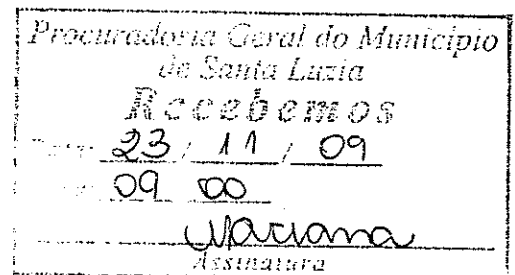 Procuradoria Geral do Município
de Santa Luzia
Recebemos
23 / 11 / 09
09 00
Mariana
Assinatura